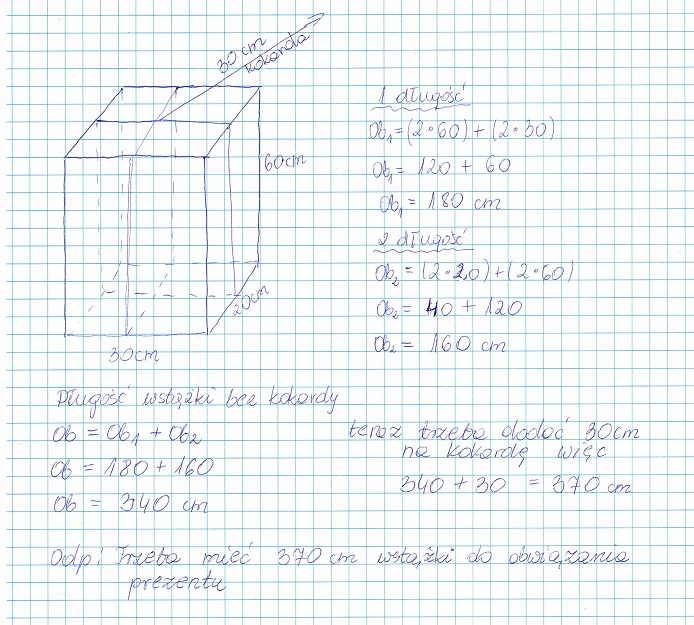 30 cm
kokarda
60cm
20cm
30cm
1 długość
Ob₁=(2·60)+(2·30)
Ob₁= 120 + 60
Ob₁= 180 cm
2 długość
Ob₂=(2·20)+(2·60)
Ob₂= 40 + 120
Ob₂= 160 cm
Długość wstążki bez kokardy
Ob = Ob₁ + Ob₂
Ob = 180 + 160
Ob = 340 cm
teraz trzeba dodać 30cm
na kokardę więc
340 + 30 = 370 cm
Odp: Trzeba mieć 370 cm wstążki do obwiązania
prezentu